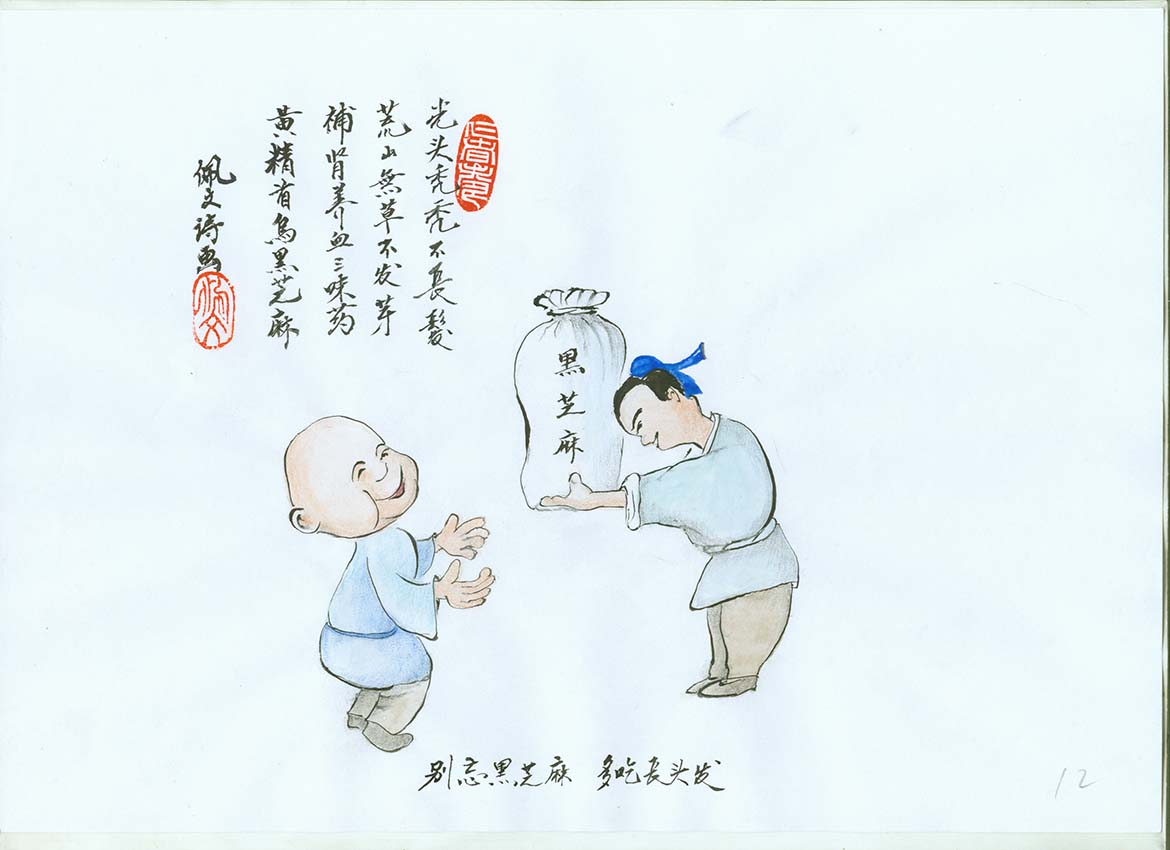 光头秃秃不長髮
荒山無草不发芽
補肾养血三味药
黄精首烏黑芝麻
佩文诗画
黑芝麻
别忘黑芝麻 多吃长头发
12